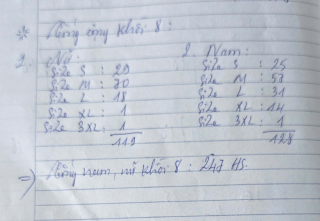 * Tổng cộng khối 8 :
1. Nữ :
Size S : 29
Size M : 70
Size L : 18
Size XL : 1
Size 3XL : 1
119
2. Nam :
Size S : 25
Size M : 57
Size L : 31
Size XL : 14
Size 3XL : 1
128
=) Tổng nam, nữ khối 8 : 247 HS.